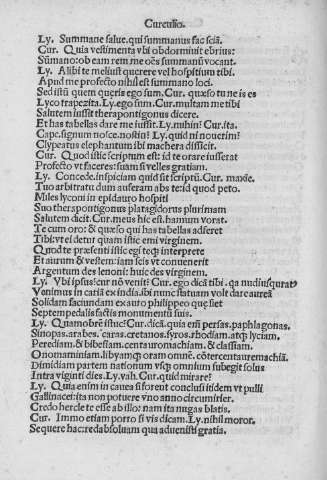 Curculio.
Ly. Summane salue. qui summanus fac sciā.
Cur. Quia vestimenta vbi obdormiuit ebrius:
Sūmano: ob eam rem me oēs summanū vocant.
Ly. Alibi te meliust querere vel hospitium tibi.
Apud me profecto nihil est summano loci.
Sed istū quem queris ego sum. Cur. quæso tu ne is es
Lyco trapezita. Ly. ego sum. Cur. multam me tibi
Salutem iussit therapontigonus dicere.
Et has tabellas dare me iussit. Ly. mihin? Cur. ita.
Cape. signum nosce. nostin? Ly. quid ni nouerim?
Clypeatus elephantum ibi machera dissicit.
Cur. Quod istic scriptum est: id te orare iusserat
Profecto vt faceres: suam si velles gratiam.
Ly. Concede. inspiciam quid sit scriptū. Cur. maxīe.
Tuo arbitratu dum auferam abs te: id quod peto.
Miles lyconi in epidauro hospiti
Suo therapontigonus platagidorus plurimam
Salutem dicit. Cur. meus hic est. hamum vorat.
Te cum oro: & quæso qui has tabellas adferet
Tibi: vt ei detur quam istic emi virginem.
Quod te præsenti istic egi teq; interprete
Et aurum & vestem: iam scis vt conuenerit
Argentum des lenoni: huic des virginem.
Ly. Vbi ipsus? cur nō venit? Cur. ego dicā tibi. qa nudiusquartꝰ
Venimus in cariā ex india. ibi nunc statuam volt dare aureā
Solidam faciundam ex auro philippeo quę siet
Septempedalis factis monumentū suis.
Ly. Quamobrē istuc? Cur. dicā. quia enī persas. paphlagonas.
Sinopas. arabes. caras. cretanos. syros. rhodiam. atq; lyciam.
Perediam. & bibesiam. centauromachiam. & classiam.
Onomaminiam. libyamq; oram omnē. cōterebromniā.
Dimidiam partem nationum vsq; omnium subegit solus
Intra viginti dies. Ly. vah. Cur. quid mirare?
Ly. Quia enim in cauea si forent conclusi itidem vt pulli
Gallinacei: ita non potuere vno anno circumirier.
Credo hercle te esse ab illo: nam ita nugas blatis.
Cur. Immo etiam porro si vis dicam. Ly. nihil moror.
Sequere hac: te absoluam qua aduenisti gratia.